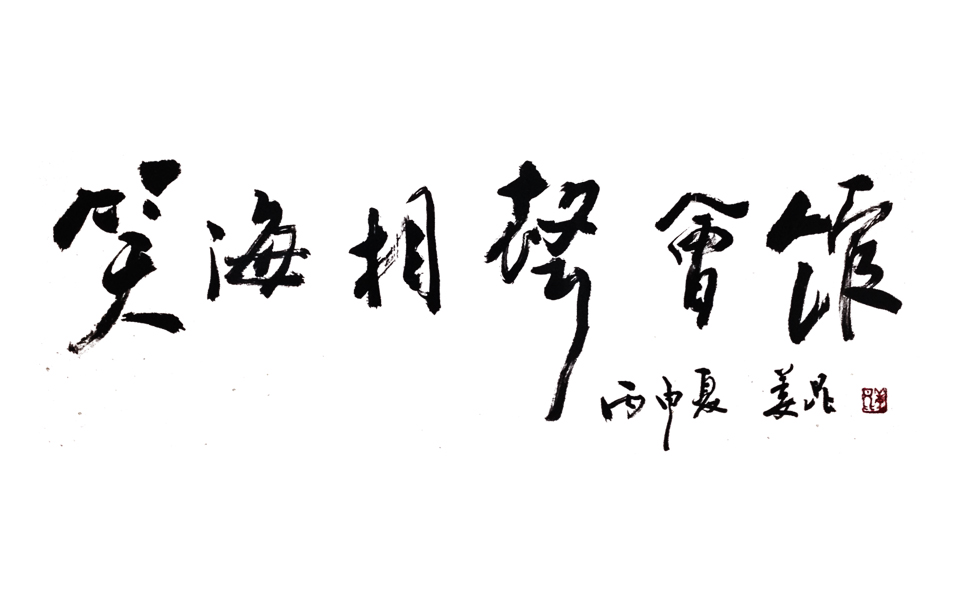 笑海相聲會馆
丙申夏 姜昆